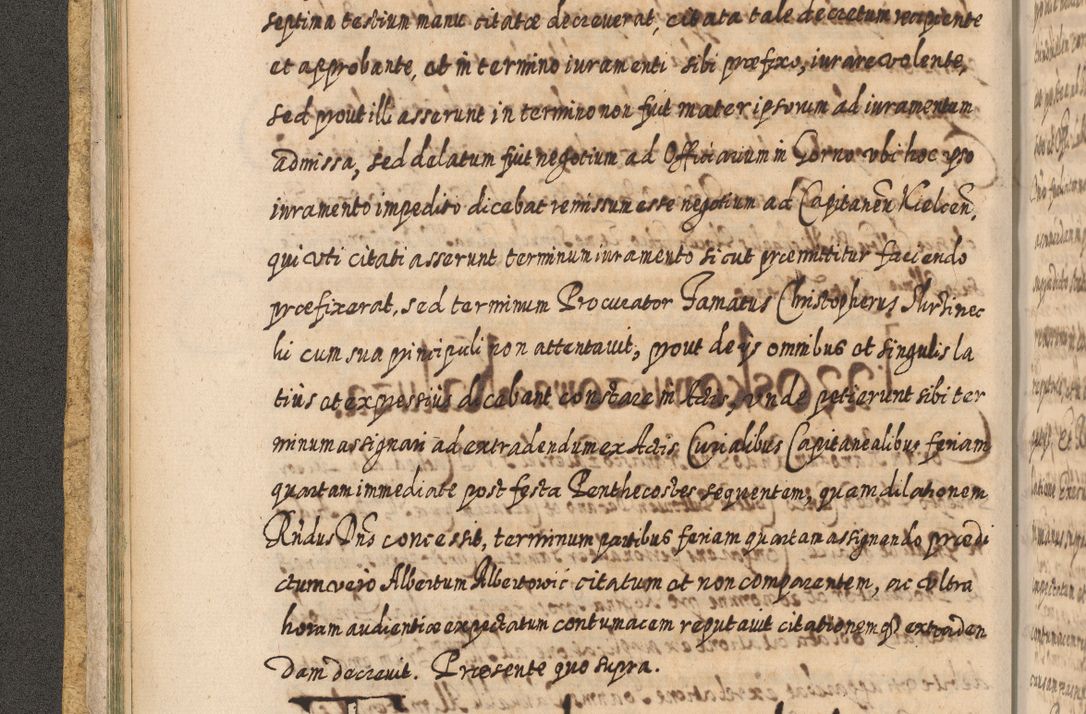 septima testium manu citatæ decreverat, citata tale decretum recipiente
et approbante, et in termino iuramenti sibi præfixo, iurare volente,
sed prout illi asserunt in termino non fuit mater ipsorum ad iuramentum
admissa, sed delatum fuit negotium ad Officiarium in Gorno vbi hoc ipso
iuramento impedito dicebat remissum esse negotium ad Capitaneũ Kielceñ,
qui vti citati asserunt terminum iuramento sicut præmittitur faciendo
præfixerat, sed terminum Procurator Famatus Christopherus
hi cum sua principali non attentavit, prout de ijs omnibus et singulis la
tiùs et expressiùs dicebant constare in Actis, vnde petierunt sibi ter
minum assignari ad extradendum ex Actis Curialibus Capitanealibus feriam
quartam immediate post festa Penthecostes sequentem, quam dilationem
Rñdus Dñs concessit, terminum partibus feriam quartam assignando prædi
ctum vero Albertum Albertowic citatum et non comparentem, ac vltra
horam audientiæ expectatum contumacem reputavit citationem extraden
dam decrevit. Præsente quo supra.